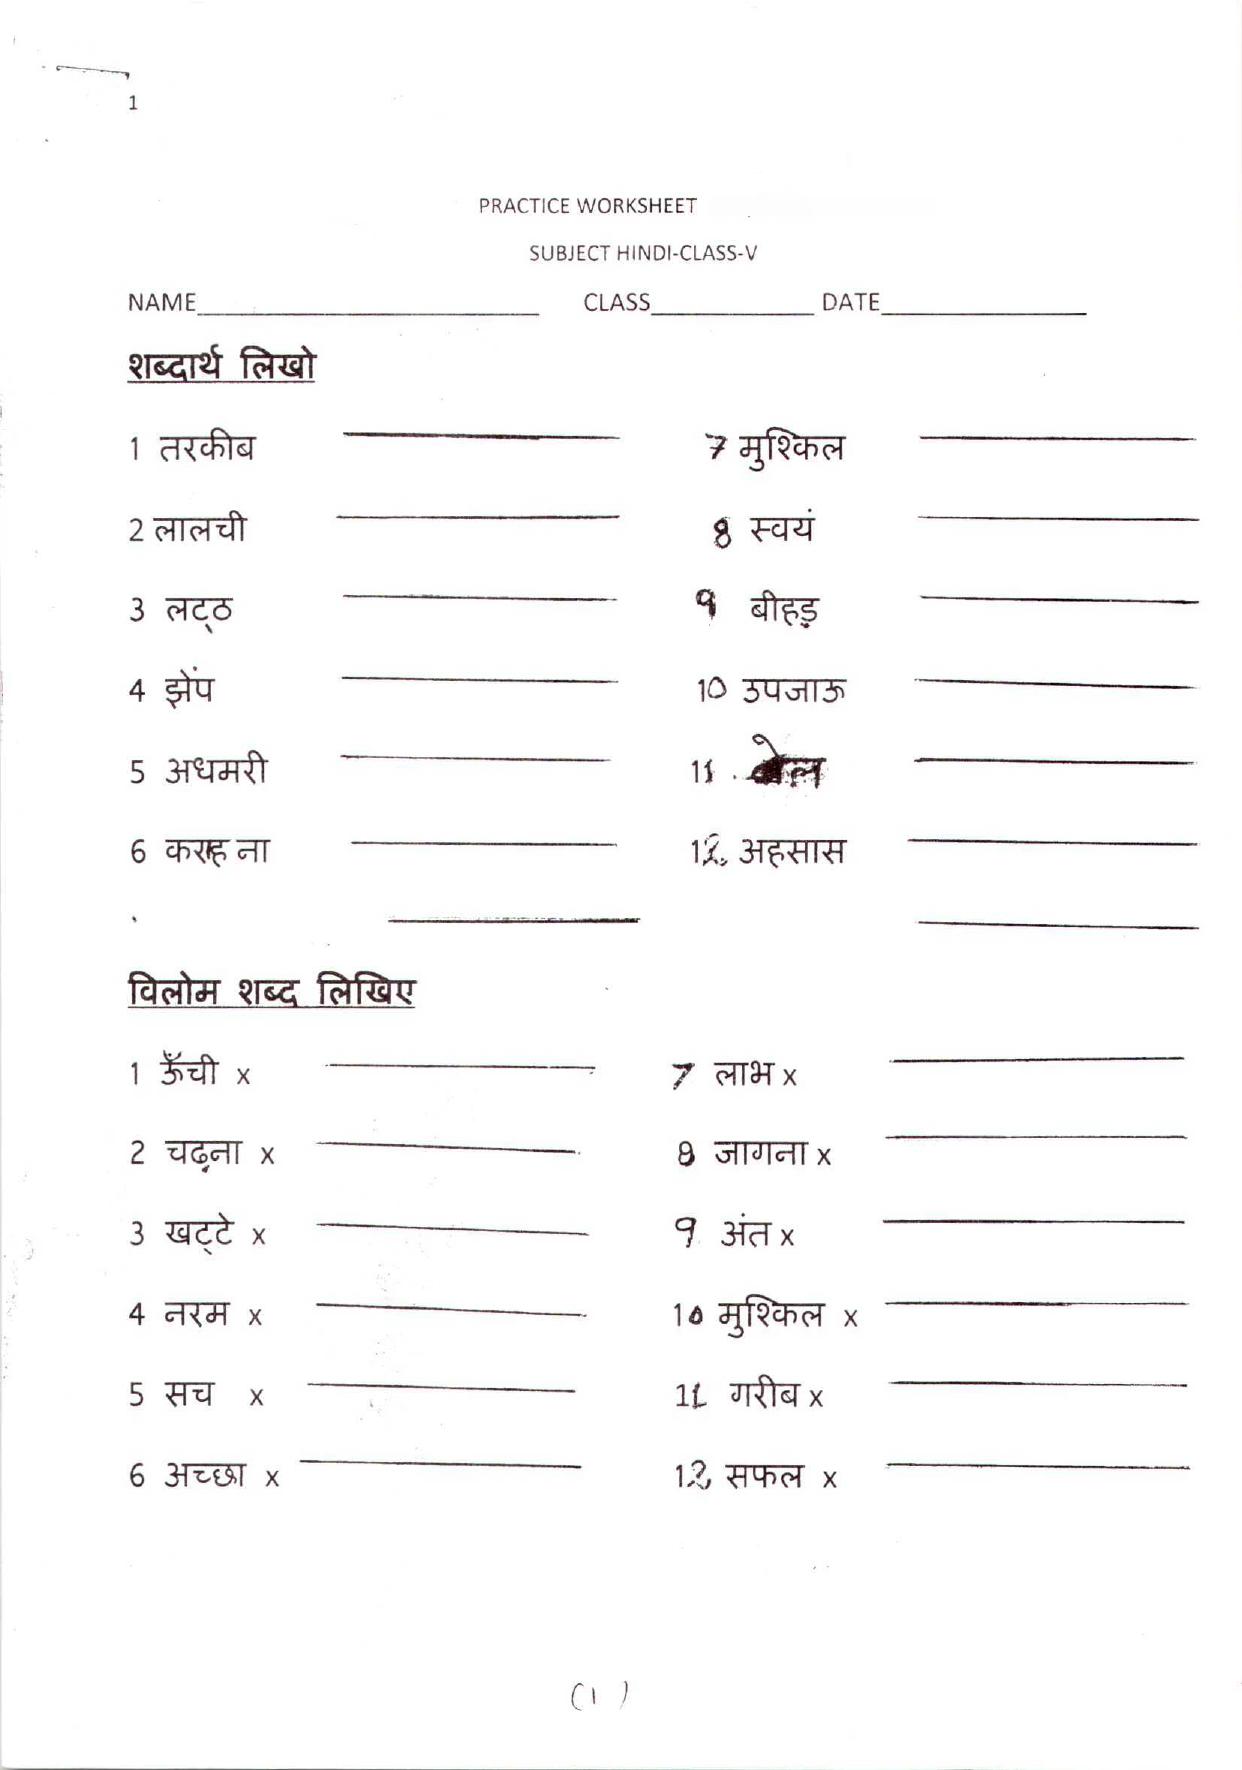 1
PRACTICE WORKSHEET
SUBJECT HINDI-CLASS-V
NAME CLASS DATE
शब्दार्थ लिखो
1 तरकीब 7 मुश्किल
2 लालची 8 स्वयं
3 लट्ठ 9 बीहड़
4 झेंप 10 उपजाऊ
5 अधमरी 11 .
6 कराहना 12 अहसास
विलोम शब्द लिखिए
1 ऊँची x 7 लाभ x
2 चढ़ना x 8 जागना x
3 खट्टे x 9 अंत x
4 नरम x 10 मुश्किल x
5 सच x 11 गरीब x
6 अच्छा x 12 सफल x
(1)